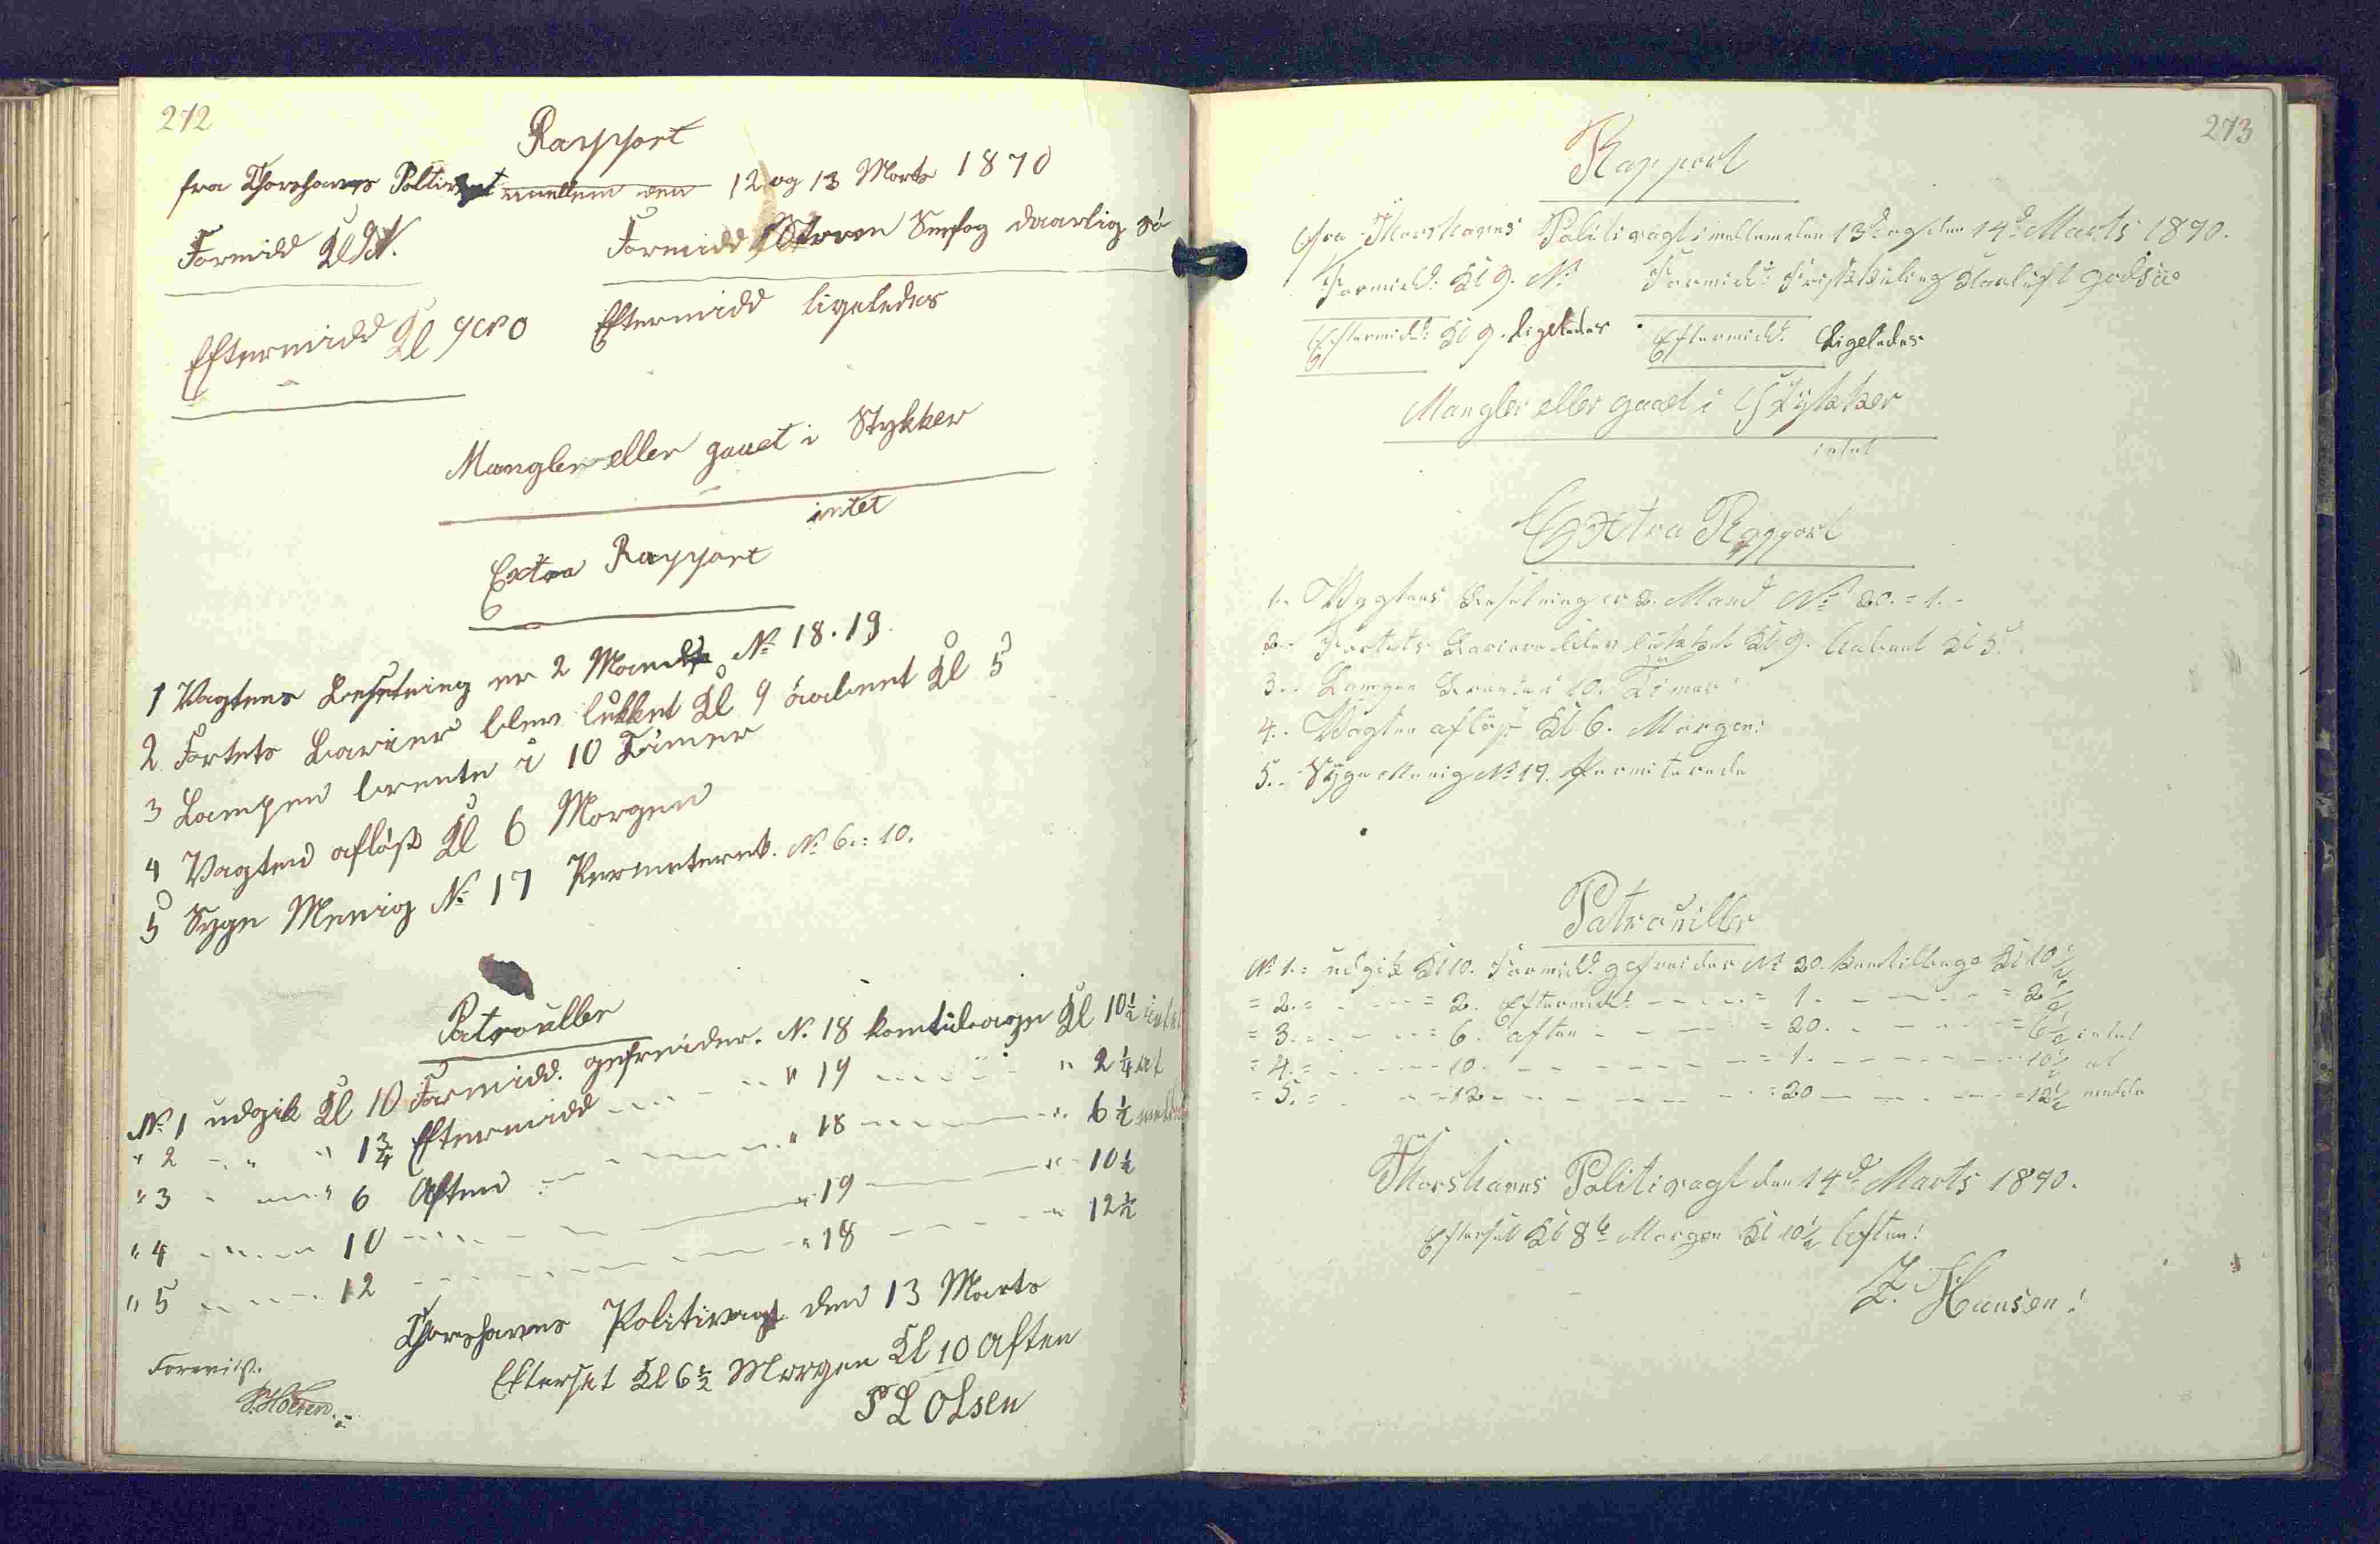 272
Rapport
fra Thorshavns Politivagt mellem den 12 og 13 Marts 1870
Formidd Kl
Formidd Storm Snefog daarlig sö
Eftermidd Kl
Eftermidd ligeledes
Mangler eller gaaet i Stykker
intet
Extra Rapport
1 Vagtens Besetning er 2 Mand No 18. 19.
2 Fortets Barier blev lukket Kl 9 aabnet Kl 5
3 Lampen brente i 10 Timer
4 Vagten afløst Kl 6 Morgen
5 Syge Menig No 17 Permeteret. No 6.=10.
Patrouller
No 1 udgik Kl 10 Formidd. gefreider. No. 18 komtilbage Kl 10½ intet
" 2 - " " 1¾ Eftermidd - - - " 19 - - - " 2¼ at
" 3 - - " 6 Aften - - - " 18 - - - " 6½ melde
" 4 - - - 10 - - - " 19 - - - " 10½
" 5 - - - 12 - - - " 18 - - - " 12½
Thorshavns Politivagt den 13 Marts
Efterset Kl 6½ Morgen Kl 10 Aften
P L Olsen
Foreviist.
273
Rapport
fra Thorshavns Politivagt imellem den 13d og den 14d Marts 1870.
Formidd: Kl 9. No
Formidd: Friskkuling Klarluft god söe
Eftermidd: Kl 9. Ligeledes
Eftermidd: Ligeledes
Mangler eller gaaet i Stykker
intet
Extra Rapport
1.. Vagtens Besetning er 2. Mand No 20. = 1. -
2.. Fortets Bariere blev lukket Kl 9. Aabnet Kl 5.
3.. Lampen Brente i 10. Timer
4.. Vagten afløst Kl 6. Morgen:
5.. Syge Menig No 17. Permiterede
Patrouiller
No 1.= udgik Kl 10. Formidd: gefreider No 20. komtilbage Kl 10½
= 2.= - - - = 2. Eftermidd: - - - = 1. - - - = 2½
= 3.= - - - = 6. aften - - - = 20. - - - = 6½ intet
= 4.= - - - 10. - - - = 1. - - - 10½ at
= 5.= - - = 12 - - - = 20 - - - = 12½ melde
Thorshavns Politivagt den 14d Marts 1870.
Efterset Kl 8 Morgen Kl 10½ Aften!
Z. Hansen!